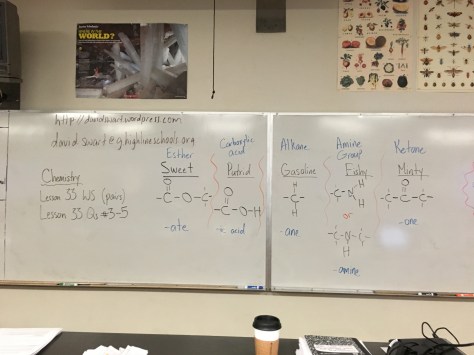 WORLD?
http://davidswart.wordpress.com
david.swart@ghighlineschools.org
Chemistry
Lesson 33 WS (pairs)
Lesson 33 Qs #3-5
Esther
Sweet
O
-C-O-C-
-ate
Carboxylic
acid
Putrid
O
-C-O-H
-ic acid
Alkane
Gasoline
-C-
-ane
Amine
Group
Fishy
or
-amine
Ketone
Minty
O
-C-C-C-
-one